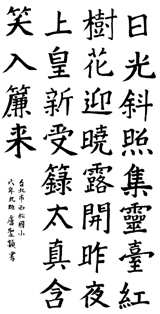 日光斜照集靈臺紅
樹花迎曉露開昨夜
上皇新受籙太真含
笑入簾来
台北市西松國小
六年九班 唐聖穎書